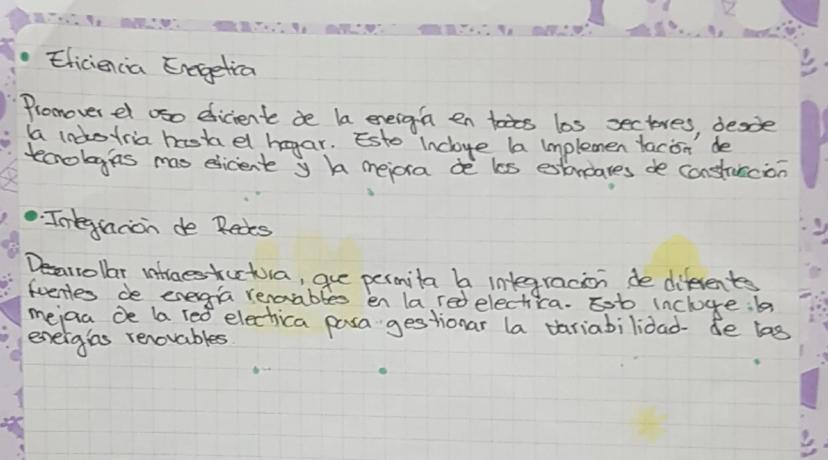 • Eficiencia Energetica
Promover el uso eficiente de la energía en todos los sectores, desde
la industria hasta el hogar. Esto Incluye la implemen tación de
tecnologías mas eficiente y la mejora de los estandares de construcción
• Integración de Redes
Desarrollar infraestructura, que permita la integración de diferentes
fuentes de energía renovables en la red electrica. Esto incluye la
mejora de la red electrica para gestionar la variabilidad de las
energías renovables.